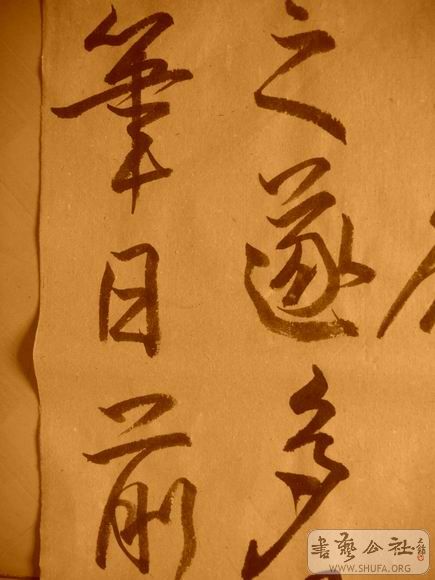 之遂多
筆目前
書藝公社
WWW.SHUFA.ORG